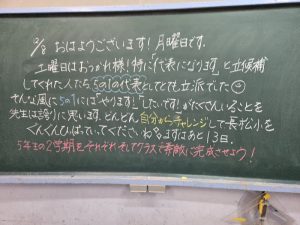 12/8 おはようございます!月曜日です。
土曜日はおつかれ様!特に「代表になります」と立候補
してくれた人たち5の1の代表としてとても立派でした
そんな風に5の1には「やります!」「したいです!」がたくさんいることを
先生は誇りに思います。どんどん自分からチャレンジして長松小を
ぐんぐんひっぱっていってくださいね。ますはあと13日。
5年生の2学期をそれぞれそしてクラスで素敵に完成させよう!